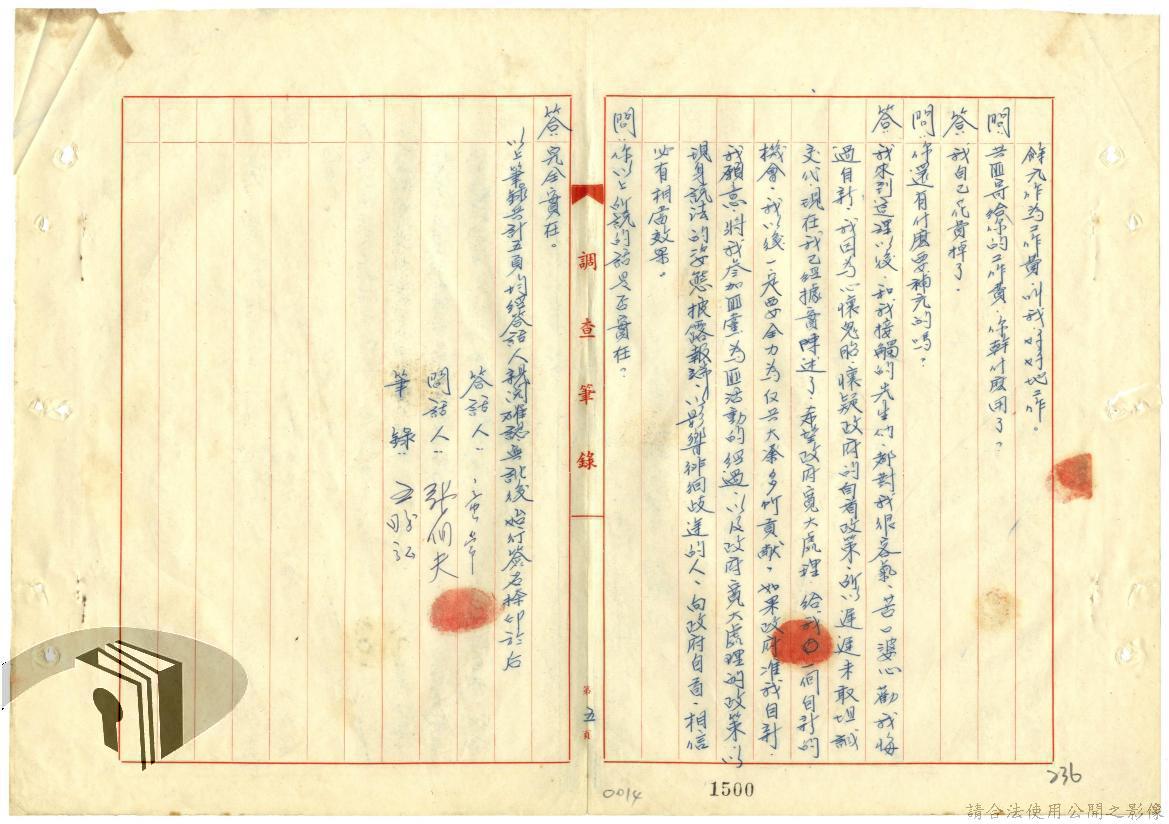 餘元作為工作費，叫我好好地工作。
問：共匪哥給你的工作費，你幹什麼用了？
答：我自己花費掉了。
問：你還有什麼要補充的嗎？
答：我來到這裡以後，和我接觸的先生们，都對我很客氣，苦口婆心勸我悔
過自新，我因為心懷鬼胎懷疑政府的自首政策，所以遲遲未取坦誠
交代，現在我已經據實陳述了，希望政府寬大處理，給我〇一個自新的
機會，我以後一定要全力為反共大業多所貢獻，如果政府准我自新，
我願意，將我參加匪黨為匪活動的經過，以及政府寬大處理的政策，以
現身說法的姿態，披露報端，以影響徘徊歧途的人，向政府自首，相信
必有相當效果。
問：你以上所說的話是否實在？
答：完全實在。
以上筆錄共計五頁均經答話人親閱確認無訛後始行簽名捺印於后
答話人：
問話人：張
筆錄：王
調查筆錄
第五頁
0014
1500
236
請合法使用公開之影像